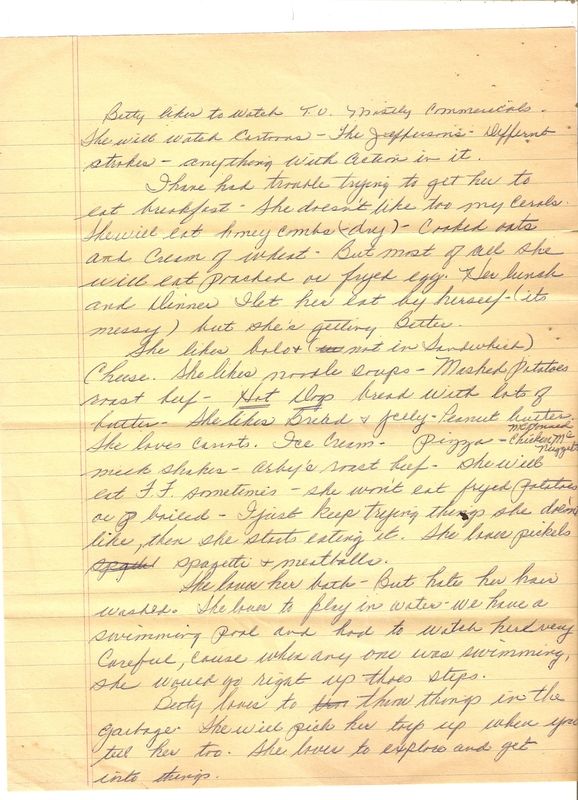 Betty likes to watch T.V. Mostly Commericals.
She will watch Cartoons - The Jefferson's - Differnt
strokes - anything with action in it.
I have had trouble trying to get her to
eat breakfast - She doesn't like too my cerals.
She will eat honey combs (dry) - Cooked oats
and Cream of wheat - But most of all she
will eat poached or fryed egg. Her lunch
and Dinner I let her eat by herself - (its
messy) but she's getting Better.
She likes balo + (not in Sandwhich)
Cheese. She likes noodle soups - Mashed Potatoes
roast beef - Hot Dogs bread with lots of
butter - She likes Bread & Jelly - Peanut butter.
She loves carrots. Ice Cream - Pizza - McDonald Chicken Mc Nuggets
milk shakes - Arby's roast beef - She will
eat F.F. sometimes - she won't eat fryed Potatoes
or boiled - I just keep trying things she doesn't
like, then she starts eating it. She loves pickels
spagetti & meatballs.
She loves her bath - But hate her hair
washed. She loves to play in water - we have a
swimming pool and had to watch her very
Careful, cause when any one was swimming,
she would go right up thoes steps.
Betty loves to throw things in the
garbage. She will pick her toys up when you
tell her too. She loves to explore and get
into things.